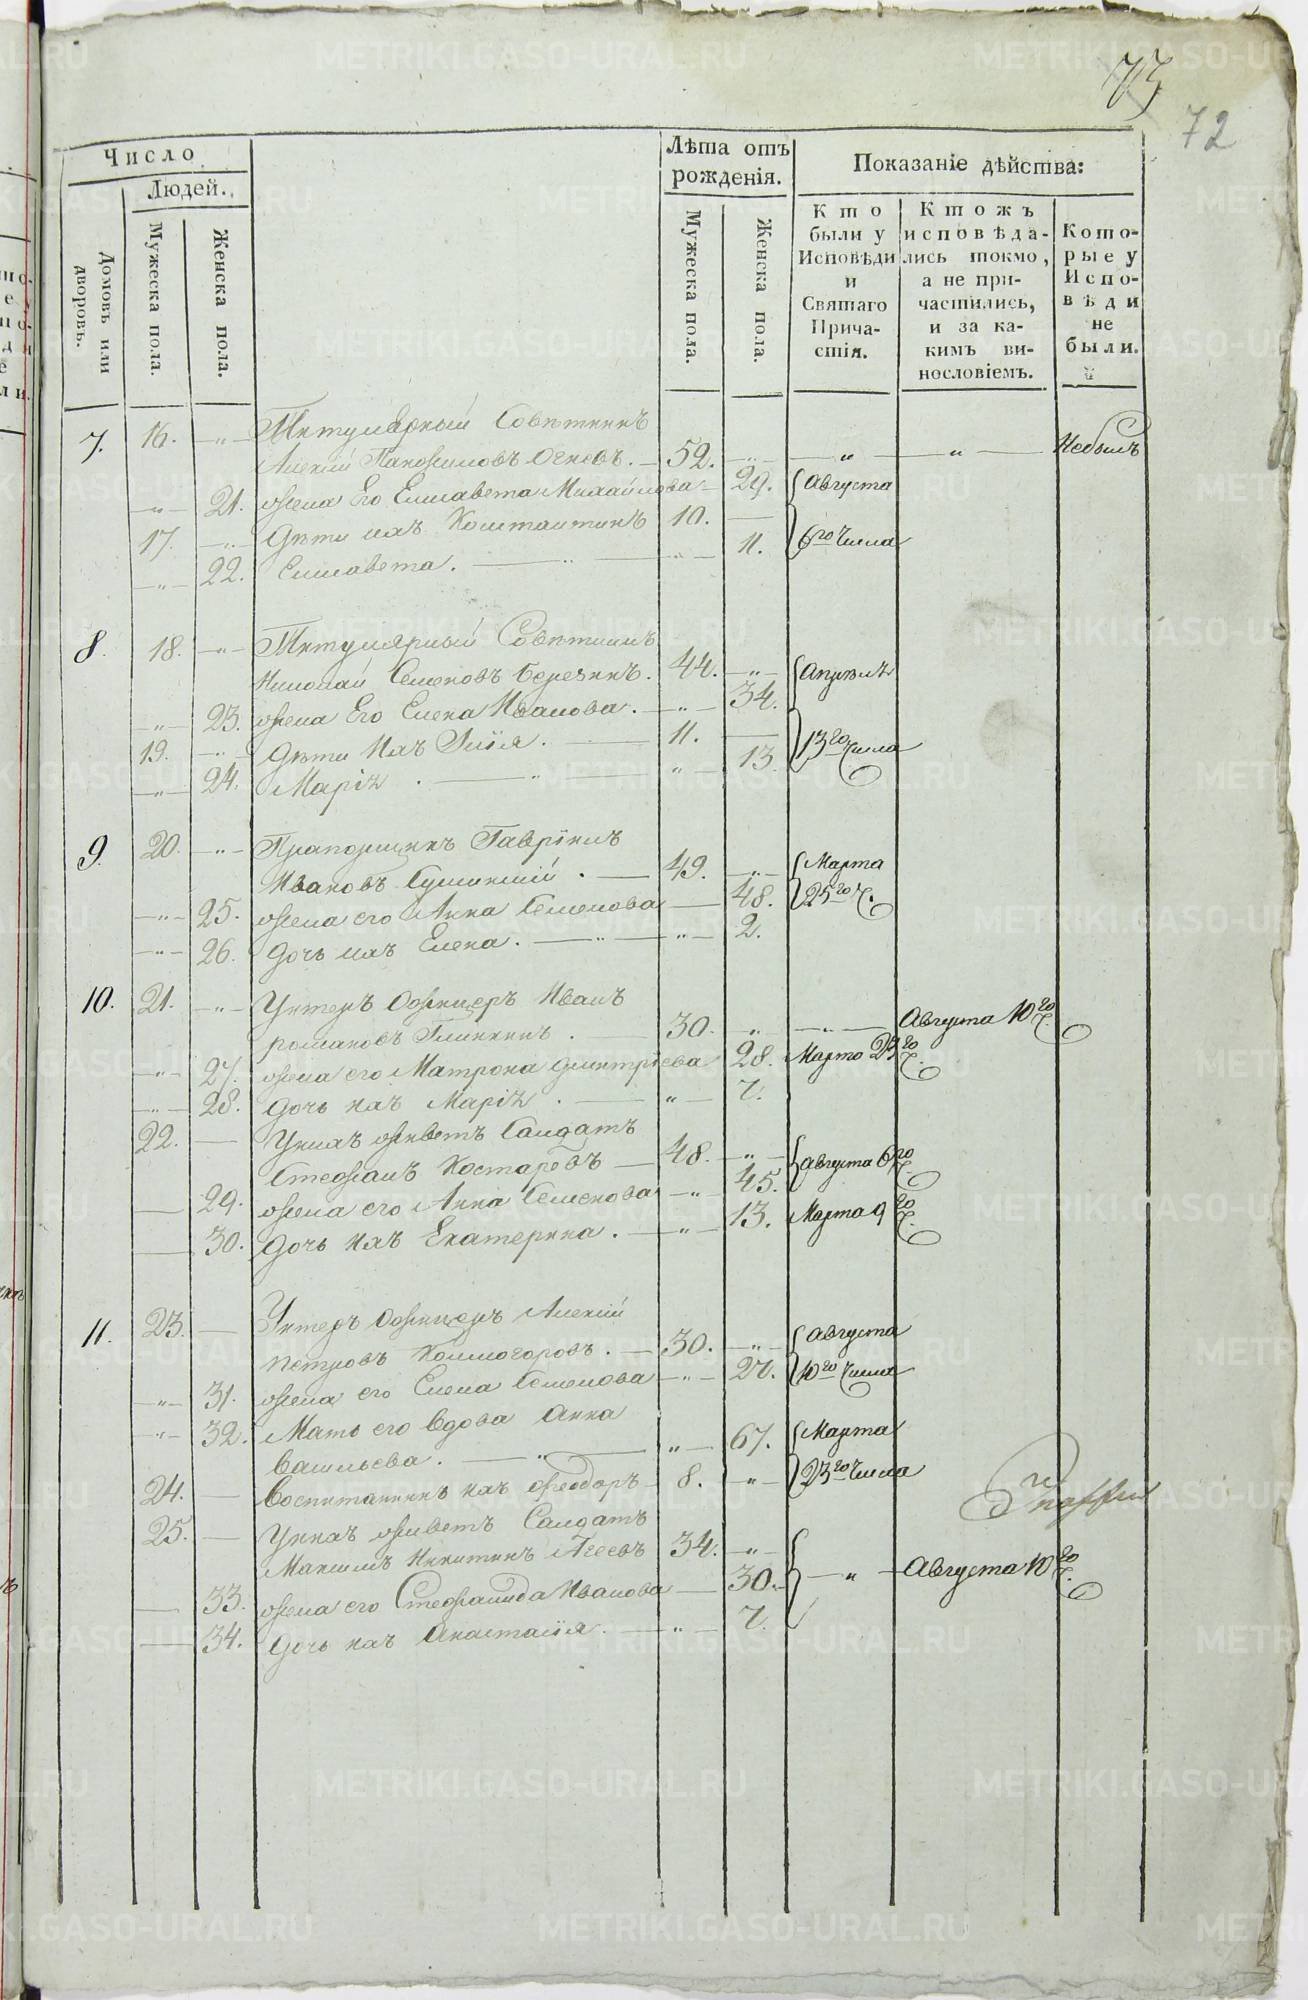 73
72
Число
Людей.
Домовъ или дворовъ.
Мужеска пола.
Женска пола.
Лѣта отъ рожденія.
Мужеска пола.
Женска пола.
Показаніе дѣйства:
Кто были у Исповѣди и Святаго Причастія.
Ктожъ исповѣдались токмо, а не причастились, и за какимъ винословіемъ.
Которые у Исповѣди не были.
7. 16. —„— Титулярный Совѣтникъ
Алексій Панфиловъ Огневъ. — 52. —„— —„— —„— Небылъ
—„— 21. жена Его Елисавета Михайлова — 29. Августа
17. —„— Дѣти ихъ Константинъ 10. —
—„— 22. Елисавета. —„— —„— 11. 6го Числа
8. 18. —„— Титулярный Совѣтникъ
Николай Семеновъ Березинъ. 44. —„— Апрѣля
—„— 23. жена Его Елена Иванова. —„— 34.
19. —„— Дѣти Ихъ Илія. — 11. — 13го числа
—„— 24. Марія —„— —„— 13
9. 20. —„— Прапорщикъ Гавріилъ
Ивановъ — 49. —„— Марта
—„— 25. жена его Анна Семенова — 48. 25го Ч.
—„— 26. дочь ихъ Елена. —„— —„— 2.
10. 21. —„— Унтеръ Офицеръ Иванъ
романовъ Глинкинъ. — 30. —„— —„— Августа 10го Ч.
—„— 27. жена его Матрона дмитріева 28. Марта 25го Ч.
—„— 28. дочь ихъ Марія. — „— 7.
22. — Унихъ живетъ Салдатъ
Стефанъ Костаревъ — 48. —„— августа 6го Ч.
— 29. жена его Анна Семенова —„ 45.
— 30. дочь ихъ Екатерина. —„— 13. Марта 9го Ч.
11. 23. — Унтеръ Офицеръ Алексій
Петровъ Колмогоровъ. — 30. —„— Августа
—„— 31. жена его Елена Семенова —„— 27. 10го Числа
—„— 32. Мать его вдова Анна
васильева. —„— „— 67. Марта
24. — Воспитанникъ ихъ Феодоръ — 8. —„— 23го Числа
25. — Унихъ живетъ Салдатъ
Максимъ Никитинъ Агеевъ 34. —„—
— 33. жена его Стефанида Иванова — 30. —„— Августа 10го Ч.
— 34. дочь ихъ Анастасія. —„— 7.
METRIKI.GASO-URAL.RU